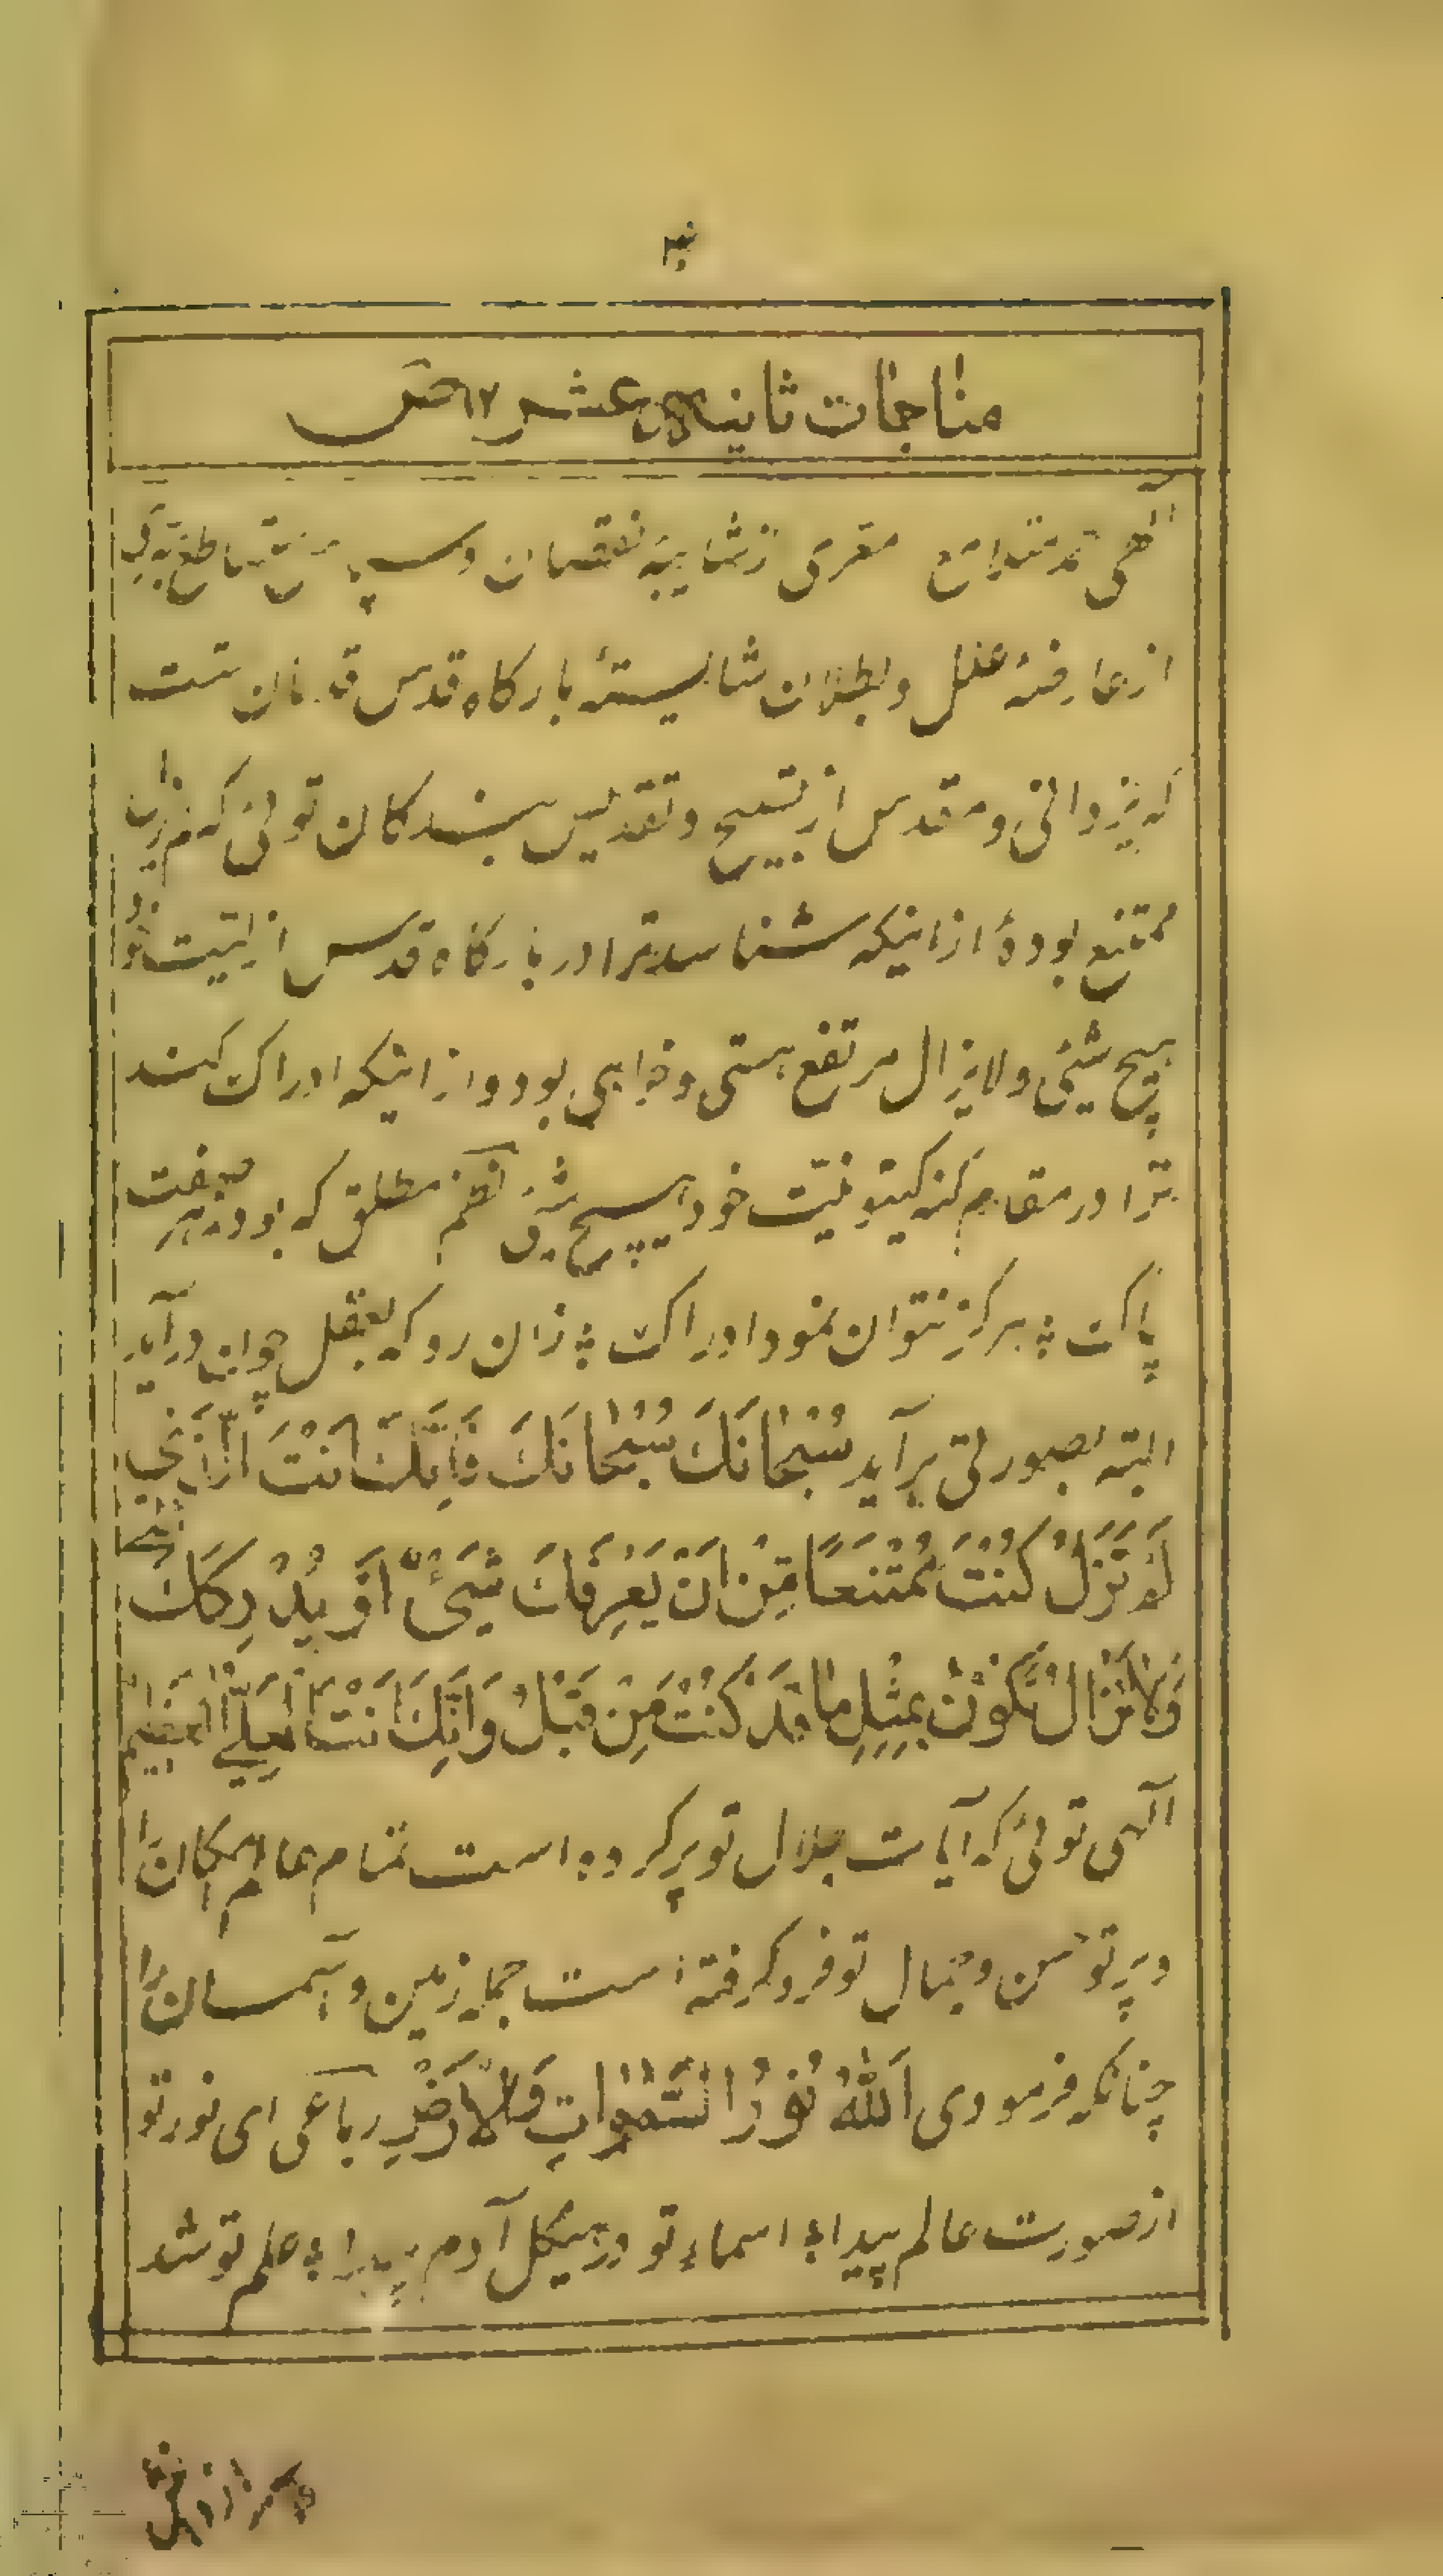 مناجات ثانیه عشر ۱۲
الهی حمد معری ز شایبهٔ نقصان و سپاس
از عارضهٔ علل و بطلان شایستهٔ بارکاه قدس تست
که یزدانی و مقدس از تسبیح و تقدیس بندکان توئی که لم یزل
ممتنع بودهٔ از اینکه شناسد ترا در بارکاه قدس ازلیّت تو
هیچ شیئی و لایزال مرتفع هستی و خواهی بود و از اینکه ادراک کند
ترا در مقام کنه کینونیّت خود هیچ شئ نظم مطلق که بود ز هر صفت
پاک ؛ هرکز نتوان نمود ادراک ؛ زان رو که بعقل چون درآید
البته بصورتی برآید سُبْحانَكَ سُبْحانَكَ فَاِنَّكَ اَنْتَ الَّذي
لَمْ تَزَلْ كُنْتَ مُمْتَنِعًا مِنْ اَنْ يَعْرِفَكَ شَيْئٌ اَوْ يُدْرِكَكَ شَيْئٌ
وَلا تَزالُ تَكُوْنُ بِمِثْلِ ما قَدْ كُنْتَ مِنْ قَبْلُ وَاِنَّكَ اَنْتَ الْعَلِيُّ الْعَظِيْمُ
الهی توئی که آیات جلال تو پر کرده است تمام عالم امکان را
و پرتو حسن و جمال تو فرو کرفته است جمله زمین و آسمان را
چنانکه فرمودی اَللهُ نُوْرُ السَّمٰوٰاتِ وَالْاَرْضِ رباعی ای نور تو
از صورت عالم پیدا ؛ اسماء تو در هیکل آدم پیدا ؛ علم تو شد